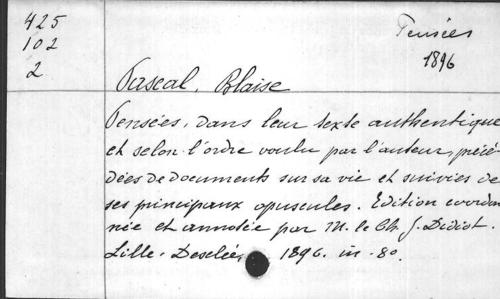 425
102
2
Pensées
1896
Pascal, Blaise
Pensées, dans leur texte authentique
et selon l'ordre voulu par l'auteur, précé-
dées de documents sur sa vie et suivies de
ses principaux opuscules. Edition coordon
née et annotée par M. le Ch. J. Didiot.
Lille, Desclée, 1896. in-8o.